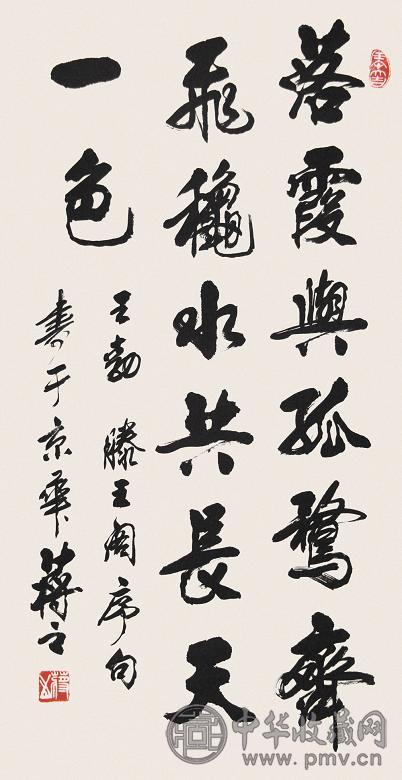 落霞與孤鶩齊
飛穐水共長天
一色
王勃 滕王阁序句
書于京華 蔣
中华收藏网
www.pmv.cn